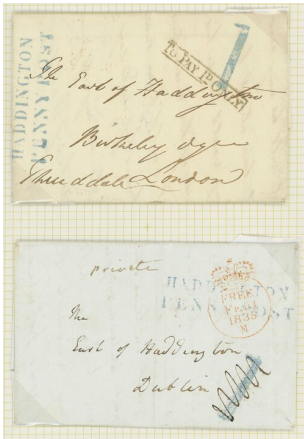 HADDINGTON
PENNY POST
TO PAY 1D ONLY
1
The Earl of Haddington
Berkeley Sqre
London
private
HADDINGTON
PENNY POST
FREE
1835
M
The
Earl of Haddington
Dublin